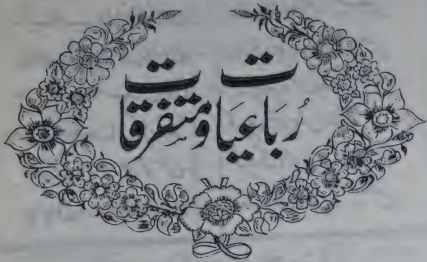 رُبَاعیات و متفرقات